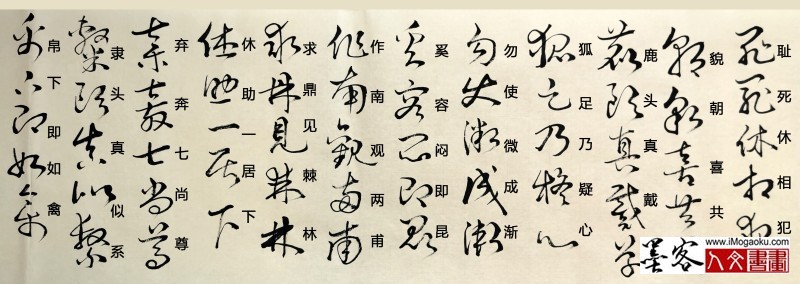 耻死休相犯
貌朝喜共
鹿头真戴
狐足乃疑心
勿使微成渐
奚容闷即昆
作南观两甫
求鼎见棘林
休助一居下
弃奔七尚尊
隶头真似系
帛下即如禽
墨客
www.iMogaoku.com
人文書畫